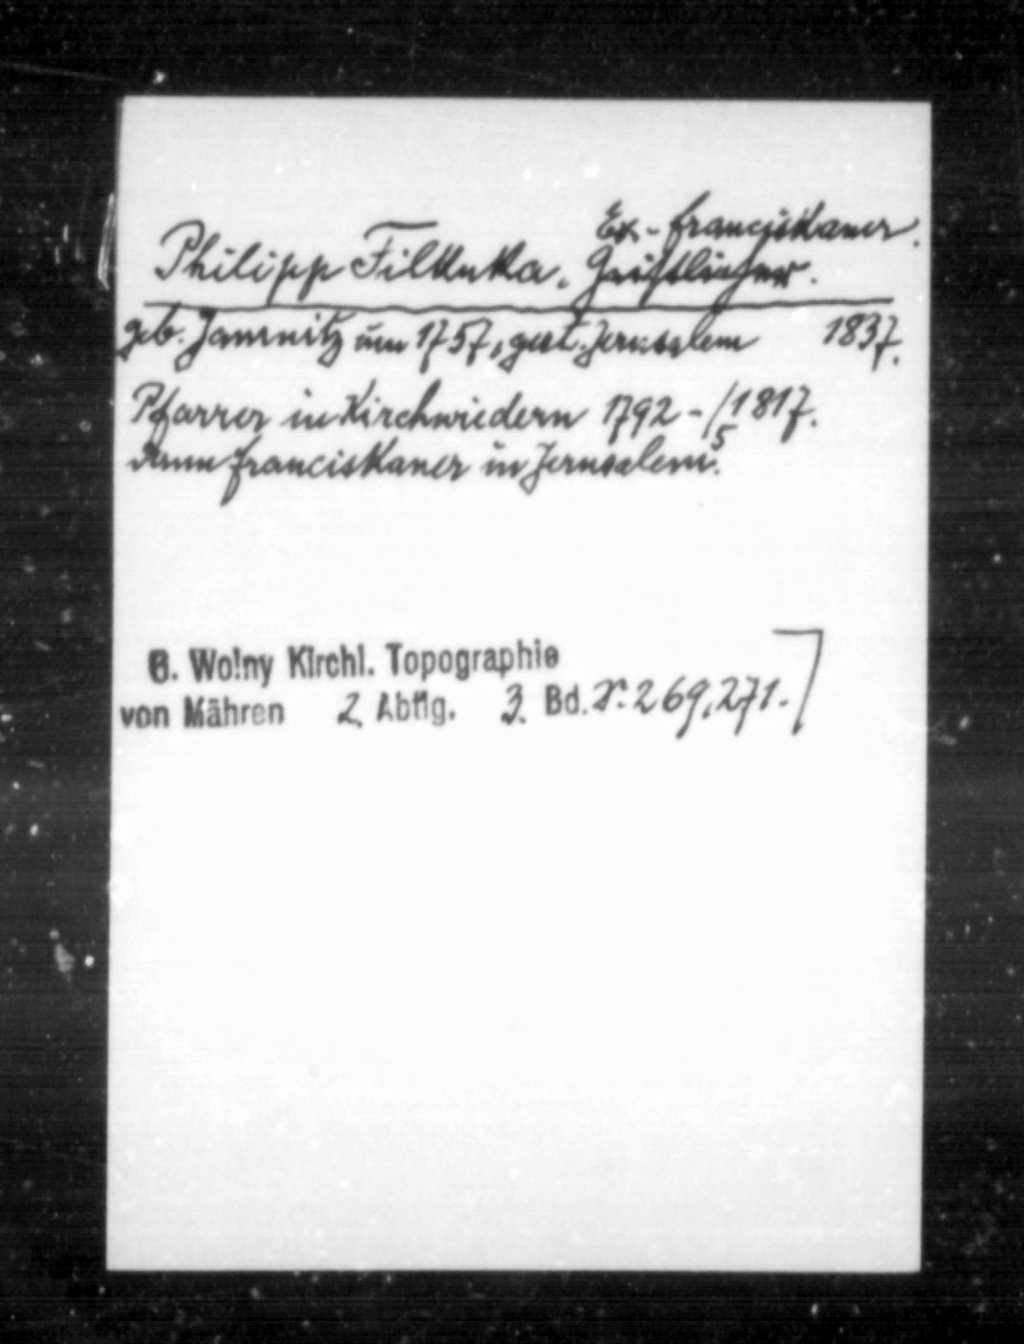 Ex-Franciskaner.
Philipp Filkuka, Geistlicher.
geb. Jamnitz um 1757, gest. Jerusalem 1837.
Pfarrer in Kirchwiedern 1792 - /5 1817.
dann Franciskaner in Jerusalem.
G. Wolny Kirchl. Topographie
von Mähren 2. Abtlg. 3. Bd. S. 269, 271.